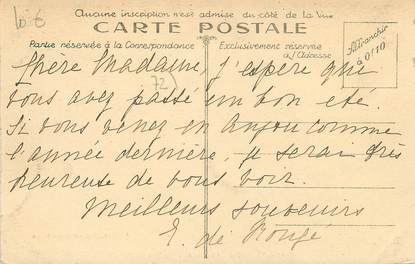 lot 6
Aucune inscription n'est admise du côté de la Vue
CARTE POSTALE
Partie réservée à la Correspondance
Exclusivement réservée
à l'Adresse
Affranchir
à 0f10
72
Chère Madame, j'espère que
vous avez passé un bon eté.
Si vous venez en Anjou comme
l'année dernière, je serai très
heureuse de vous voir.
Meilleurs souvenirs
E. de Rougé